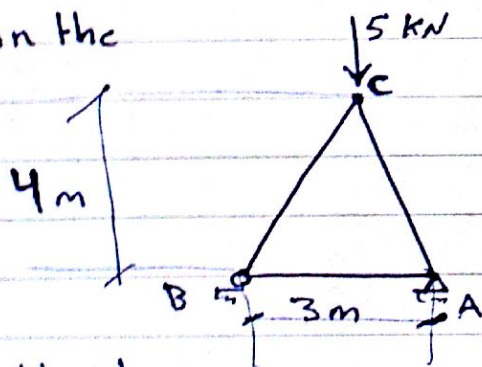 on the
5 KN
C
4 m
B
3 m
A